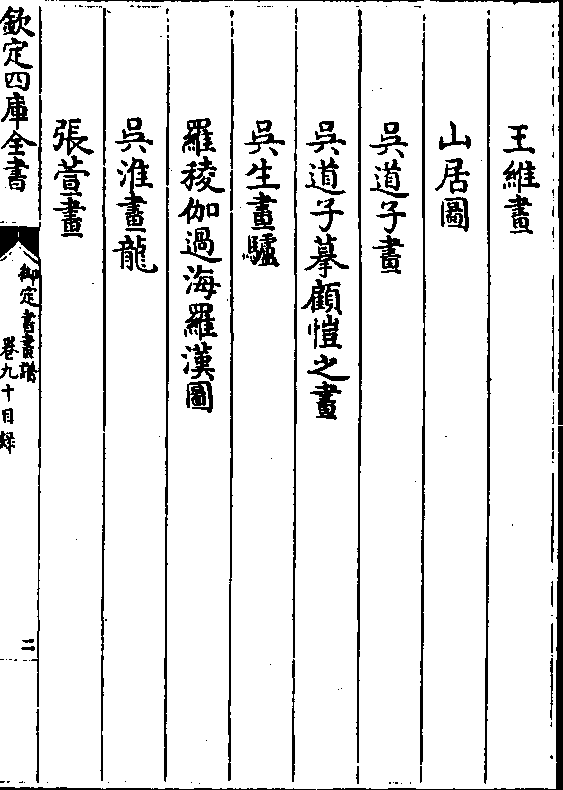 王維畫
山居圖
吳道子畫
吳道子摹顧愷之畫
吳生畫驢
羅稜伽過海羅漢圖
吳淮畫龍
張萱畫
欽定四庫全書
御定書畫譜
卷九十目録
二